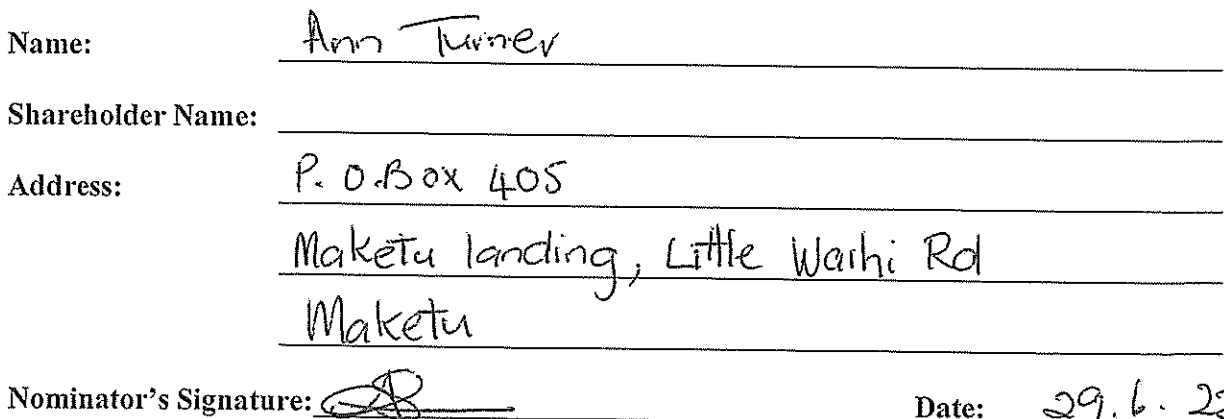 Name: Ann Turner
Shareholder Name:
Address: P.O.Box 405
Maketu landing, Little Waihi Rd
Maketu
Nominator's Signature: Date: 29.6.